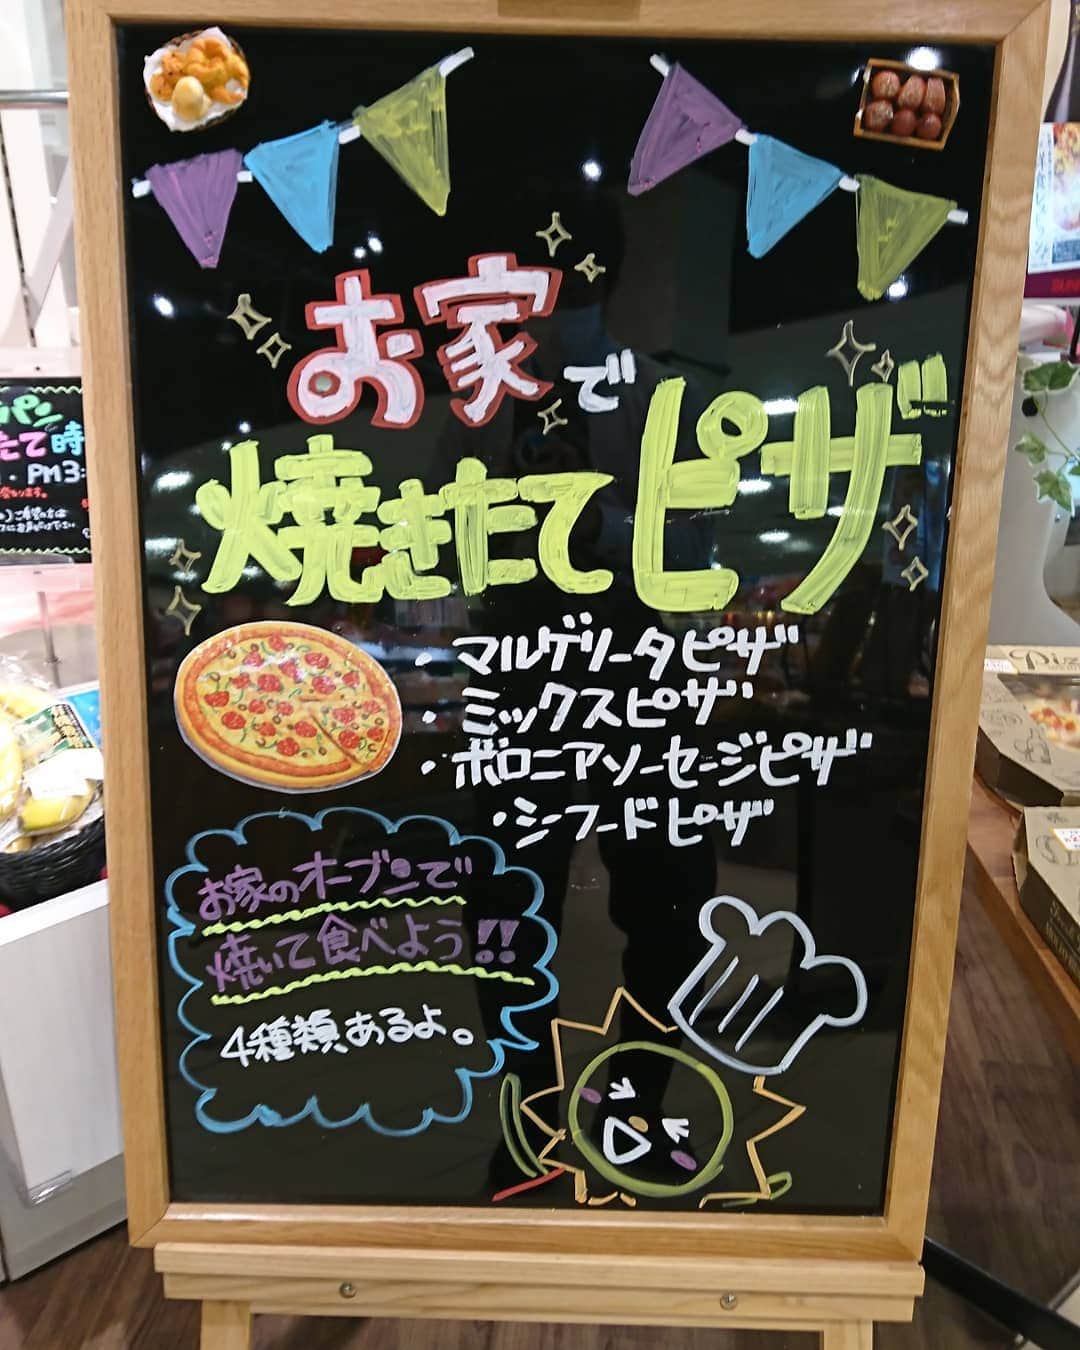 お家で
焼きたてピザ
・マルゲリータピザ
・ミックスピザ
・ボロニアソーセージピザ
・シーフードピザ
お家のオーブンで
焼いて食べよう!!
4種類、あるよ。
パン
たて時
PM3:
Pizz